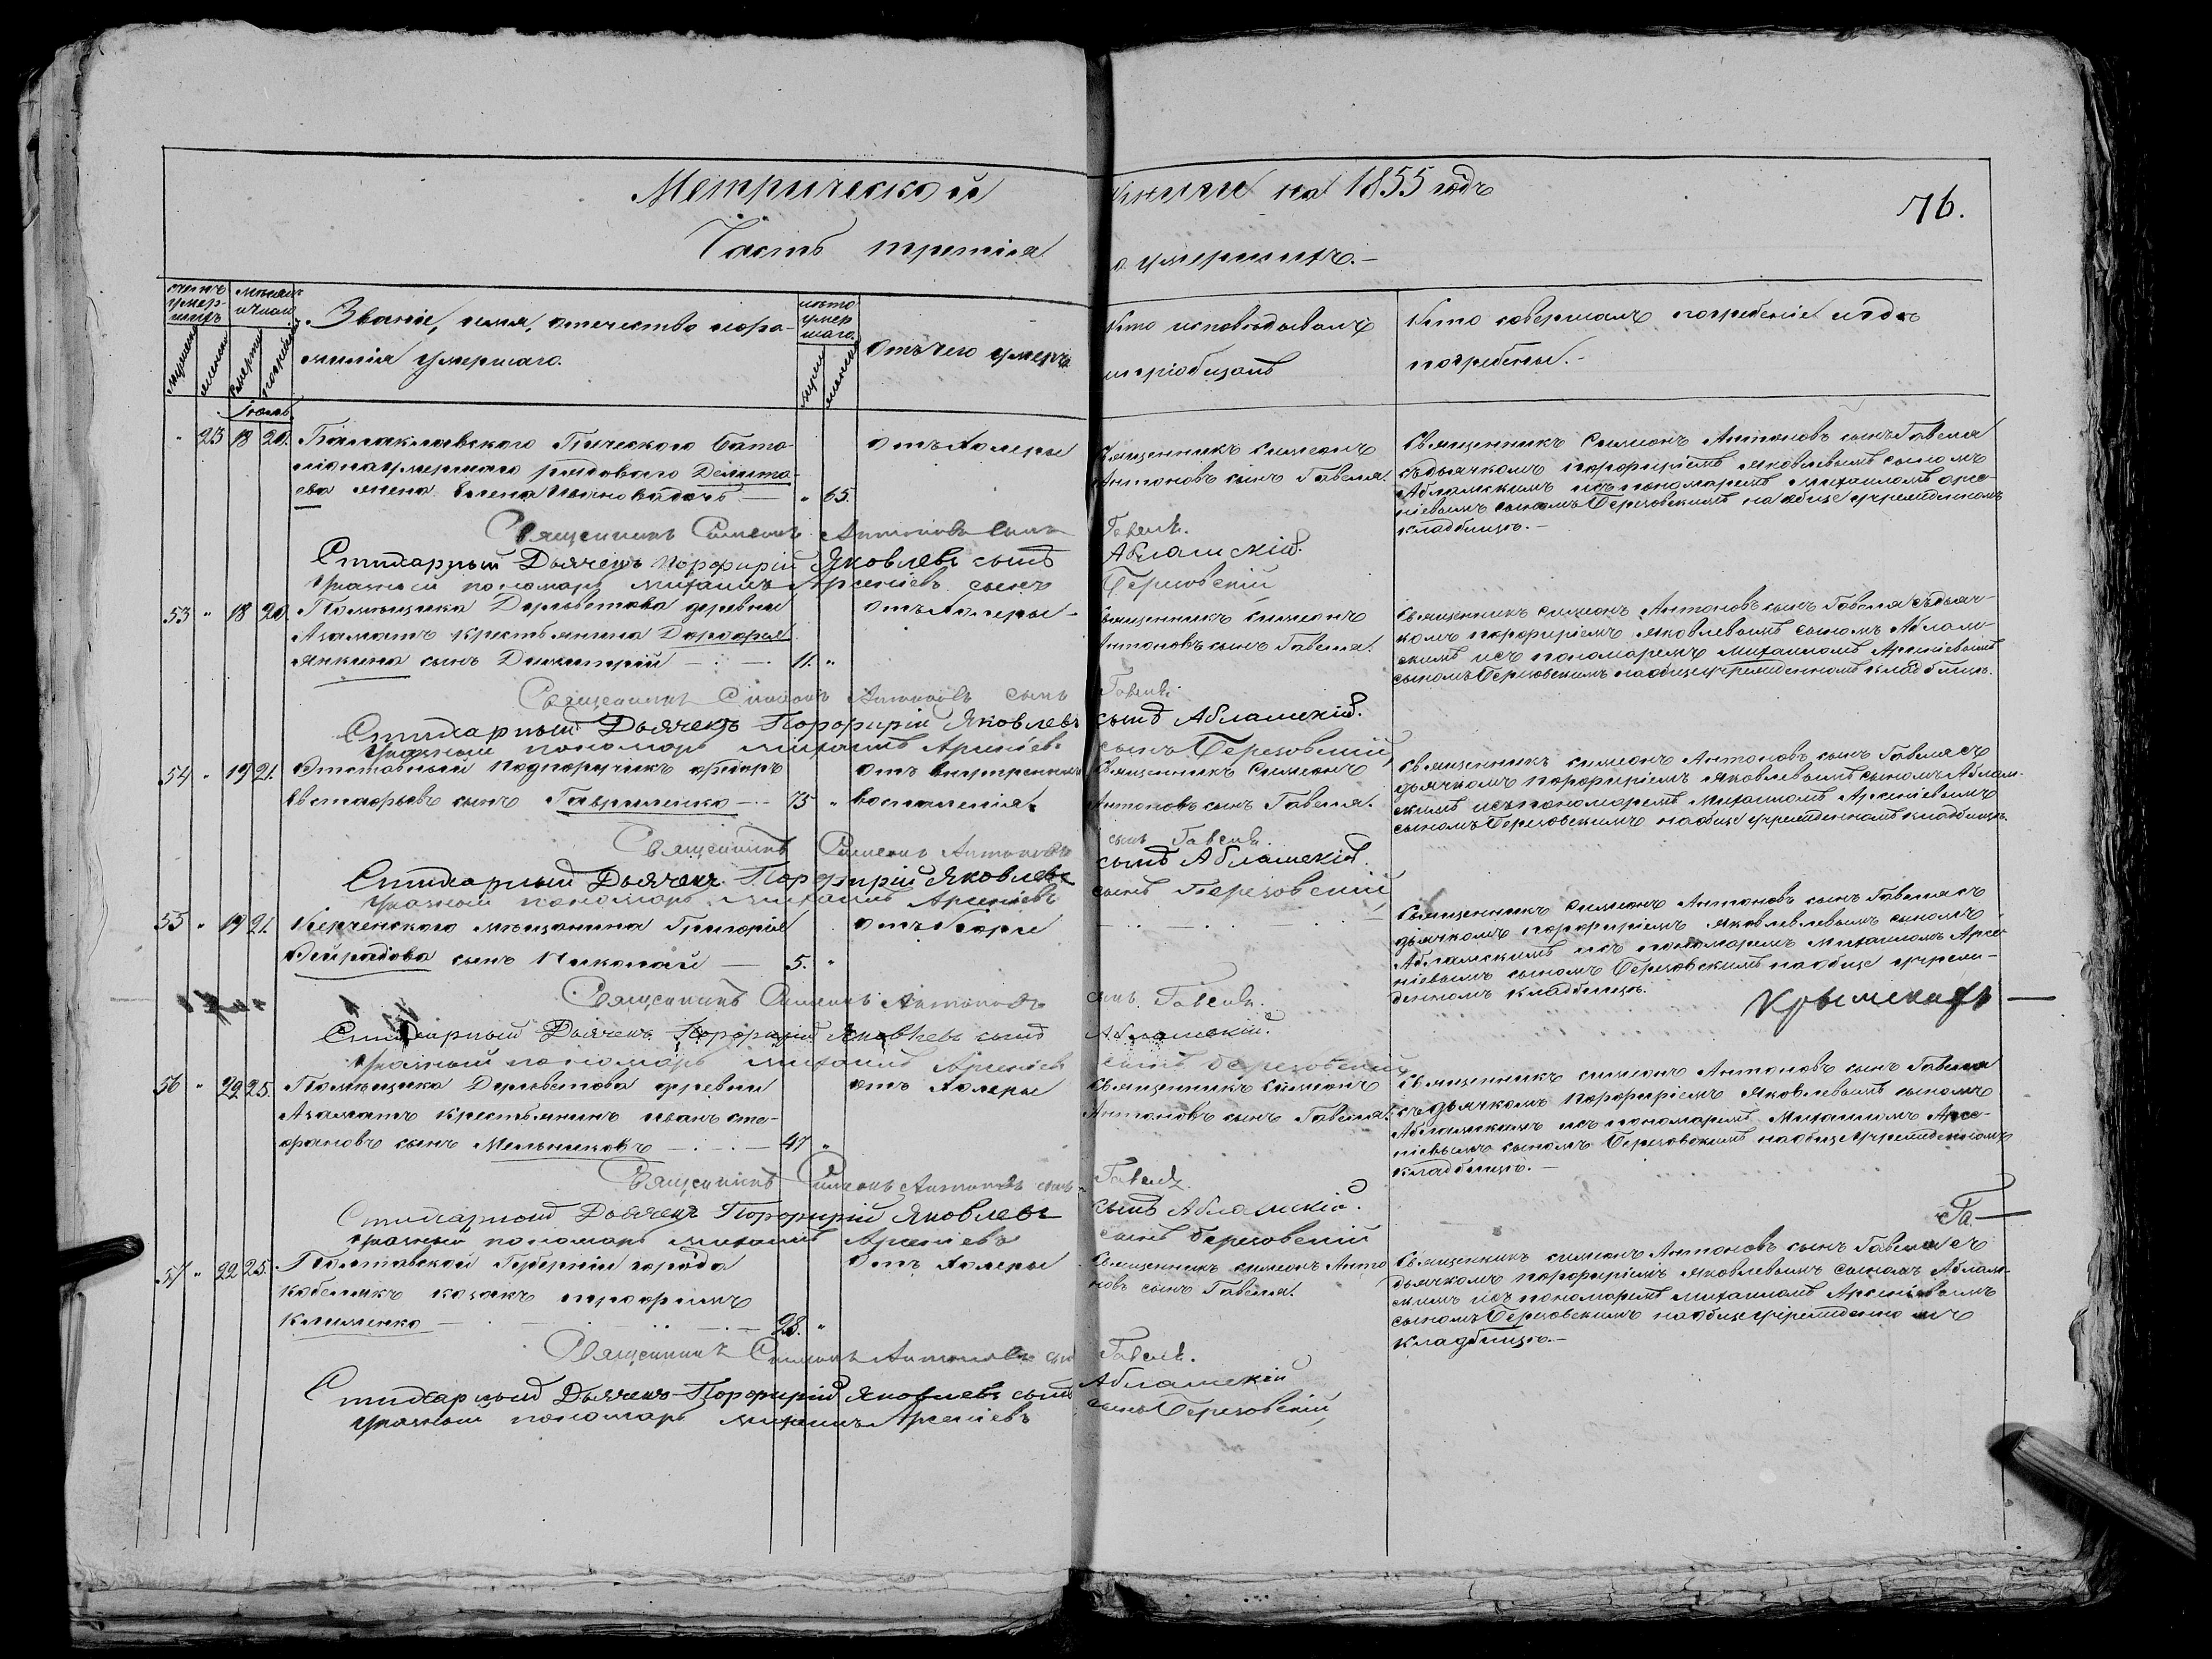 Метрической книги на 1855 годъ
76.
Часть третія о умершихъ.
счетъ умершихъ
мужеска
женска
мѣсяцъ и число
смерти
погребенія
Званіе, имя, отечество и фамилія умершаго.
лѣта умершаго
мужеск
женска
отъ чего умеръ
Кто исповѣдывалъ
и пріобщалъ
Кто совершалъ погребеніе и гдѣ
погребены.
Іюль
23 18 20. Балаклавскаго Греческаго бата-
ліона умершаго рядоваго
жена Елена — 65.
отъ Холеры
Священникъ Симеонъ
Антоновъ сынъ Гавеля.
Священникъ Симеонъ Антоновъ сынъ Гавеля
съ дьячкомъ Порфиріемъ Яковлевымъ сыномъ
Абламскимъ и съ пономаремъ Михаиломъ Арсе-
ніевымъ сыномъ Березовскимъ на общеучрежденномъ
кладбищѣ.—
Священникъ Симеонъ Антоновъ сынъ Гавель.
Стихарный Дьячекъ Порфирій Яковлевъ сынъ Абламскій.
Указный пономарь Михаилъ Арсеніевъ сынъ Березовскій
53 " 18 20. Помѣщика деревни
Азаматъ крестьянина Дорофея
Янкина сынъ Димитрій — 11. "
отъ Холеры
Священникъ Симеонъ
Антоновъ сынъ Гавеля.
Священникъ Симеонъ Антоновъ сынъ Гавеля съ дьяч-
комъ Порфиріемъ Яковлевымъ сыномъ Аблам-
скимъ и съ пономаремъ Михаиломъ Арсеніевымъ
сыномъ Березовскимъ на общеучрежденномъ кладбищѣ.
Священникъ Симеонъ Антоновъ сынъ Гавель.
Стихарный Дьячекъ Порфирій Яковлевъ сынъ Абламскій.
Указный пономарь Михаилъ Арсеніевъ сынъ Березовскій
54 " 19 21. Отставный подпоручикъ Федоръ
Евстафьевъ сынъ Гавриленко — 75 "
отъ внутренняго
воспаленія.
Священникъ Симеонъ
Антоновъ сынъ Гавеля.
Священникъ Симеонъ Антоновъ сынъ Гавеля съ
дьячкомъ Порфиріемъ Яковлевымъ сыномъ Аблам-
скимъ и съ пономаремъ Михаиломъ Арсеніевымъ
сыномъ Березовскимъ на общеучрежденномъ кладбищѣ.
Священникъ Симеонъ Антоновъ сынъ Гавель.
Стихарный Дьячекъ Порфирій Яковлевъ сынъ Абламскій.
Указный пономарь Михаилъ Арсеніевъ сынъ Березовскій
55 " 19 21. Керченскаго мѣщанина Григорія
сынъ Николай — 5. "
отъ Кори
Священникъ Симеонъ Антоновъ сынъ Гавеля съ
дьячкомъ Порфиріемъ Яковлевлевымъ сыномъ
Абламскимъ и съ пономаремъ Михаиломъ Арсе-
ніевымъ сыномъ Березовскимъ на общеучреж-
денномъ кладбищѣ.
Священникъ Симеонъ Антоновъ сынъ Гавель.
Стихарный Дьячекъ Порфирій Яковлевъ сынъ Абламскій.
Указный пономарь Михаилъ Арсеніев сынъ Березовскій
56 " 22 25. Помѣщика деревни
Азаматъ крестьянинъ Иванъ Сте-
фановъ сынъ Мельниковъ — 47 "
отъ Холеры
Священникъ Симеонъ
Антоновъ сынъ Гавеля.
Священникъ Симеонъ Антоновъ сынъ Гавеля
съ дьячкомъ Порфиріемъ Яковлевымъ сыномъ
Абламскимъ и съ пономаремъ Михаиломъ Арсе-
ніевымъ сыномъ Березовскимъ на общеучрежденномъ
кладбищѣ.—
Священникъ Симеонъ Антоновъ сынъ Гавель.
Стихарный Дьячекъ Порфирій Яковлевъ сынъ Абламскій.
Га—
Указный пономарь Михаилъ Арсеніевъ сынъ Березовскій
57 " 22 25. Полтавской Губерніи города
Кобелякъ козакъ Трофимъ
Клименко — 28. "
отъ Холеры
Священникъ Симеонъ Анто
новъ сынъ Гавеля.
Священникъ Симеонъ Антоновъ сынъ Гавеля съ
дьячкомъ Порфиріемъ Яковлевымъ сыномъ Аблам-
скимъ и съ пономаремъ Михаиломъ Арсеніевымъ
сыномъ Березовскимъ на общеучрежденномъ
кладбищѣ.—
Священникъ Симеонъ Антоновъ сын Гавель.
Стихарный Дьячекъ Порфирій Яковлевъ сынъ Абламскій
Указный пономарь Михаилъ Арсеніевъ сынъ Березовскій